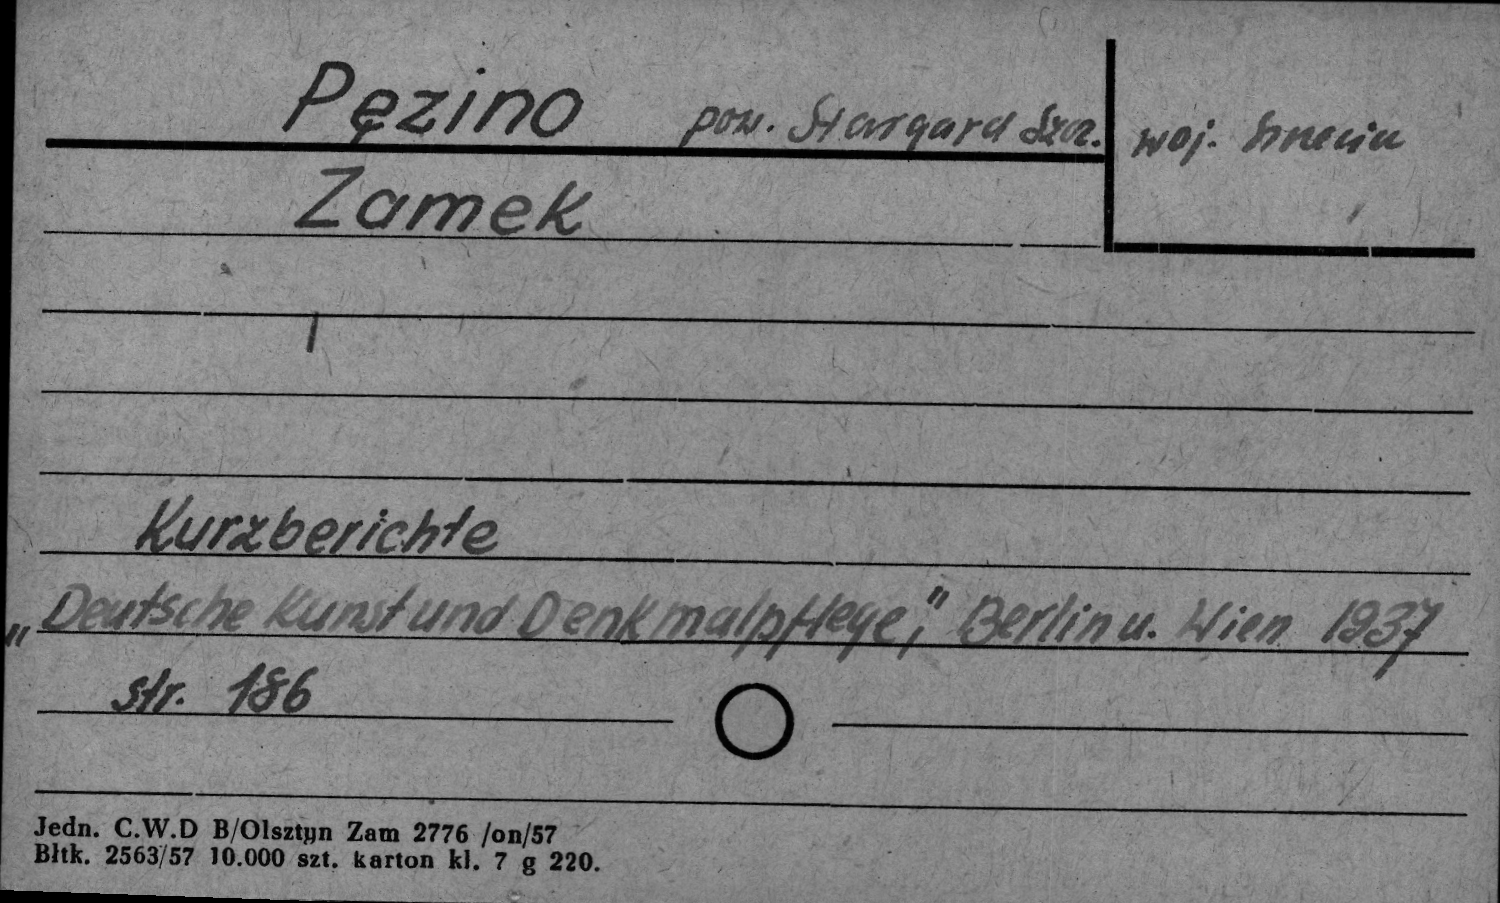 Pęzino pow. Stargard Szcz. woj.
Zamek
Kurzberichte
„Deutsche Kunst und Denkmalpflege," Berlin u. Wien 1937
str. 186
Jedn. C.W.D B/Olsztyn Zam 2776 /on/57
Błtk. 2563/57 10.000 szt. karton kl. 7 g 220.